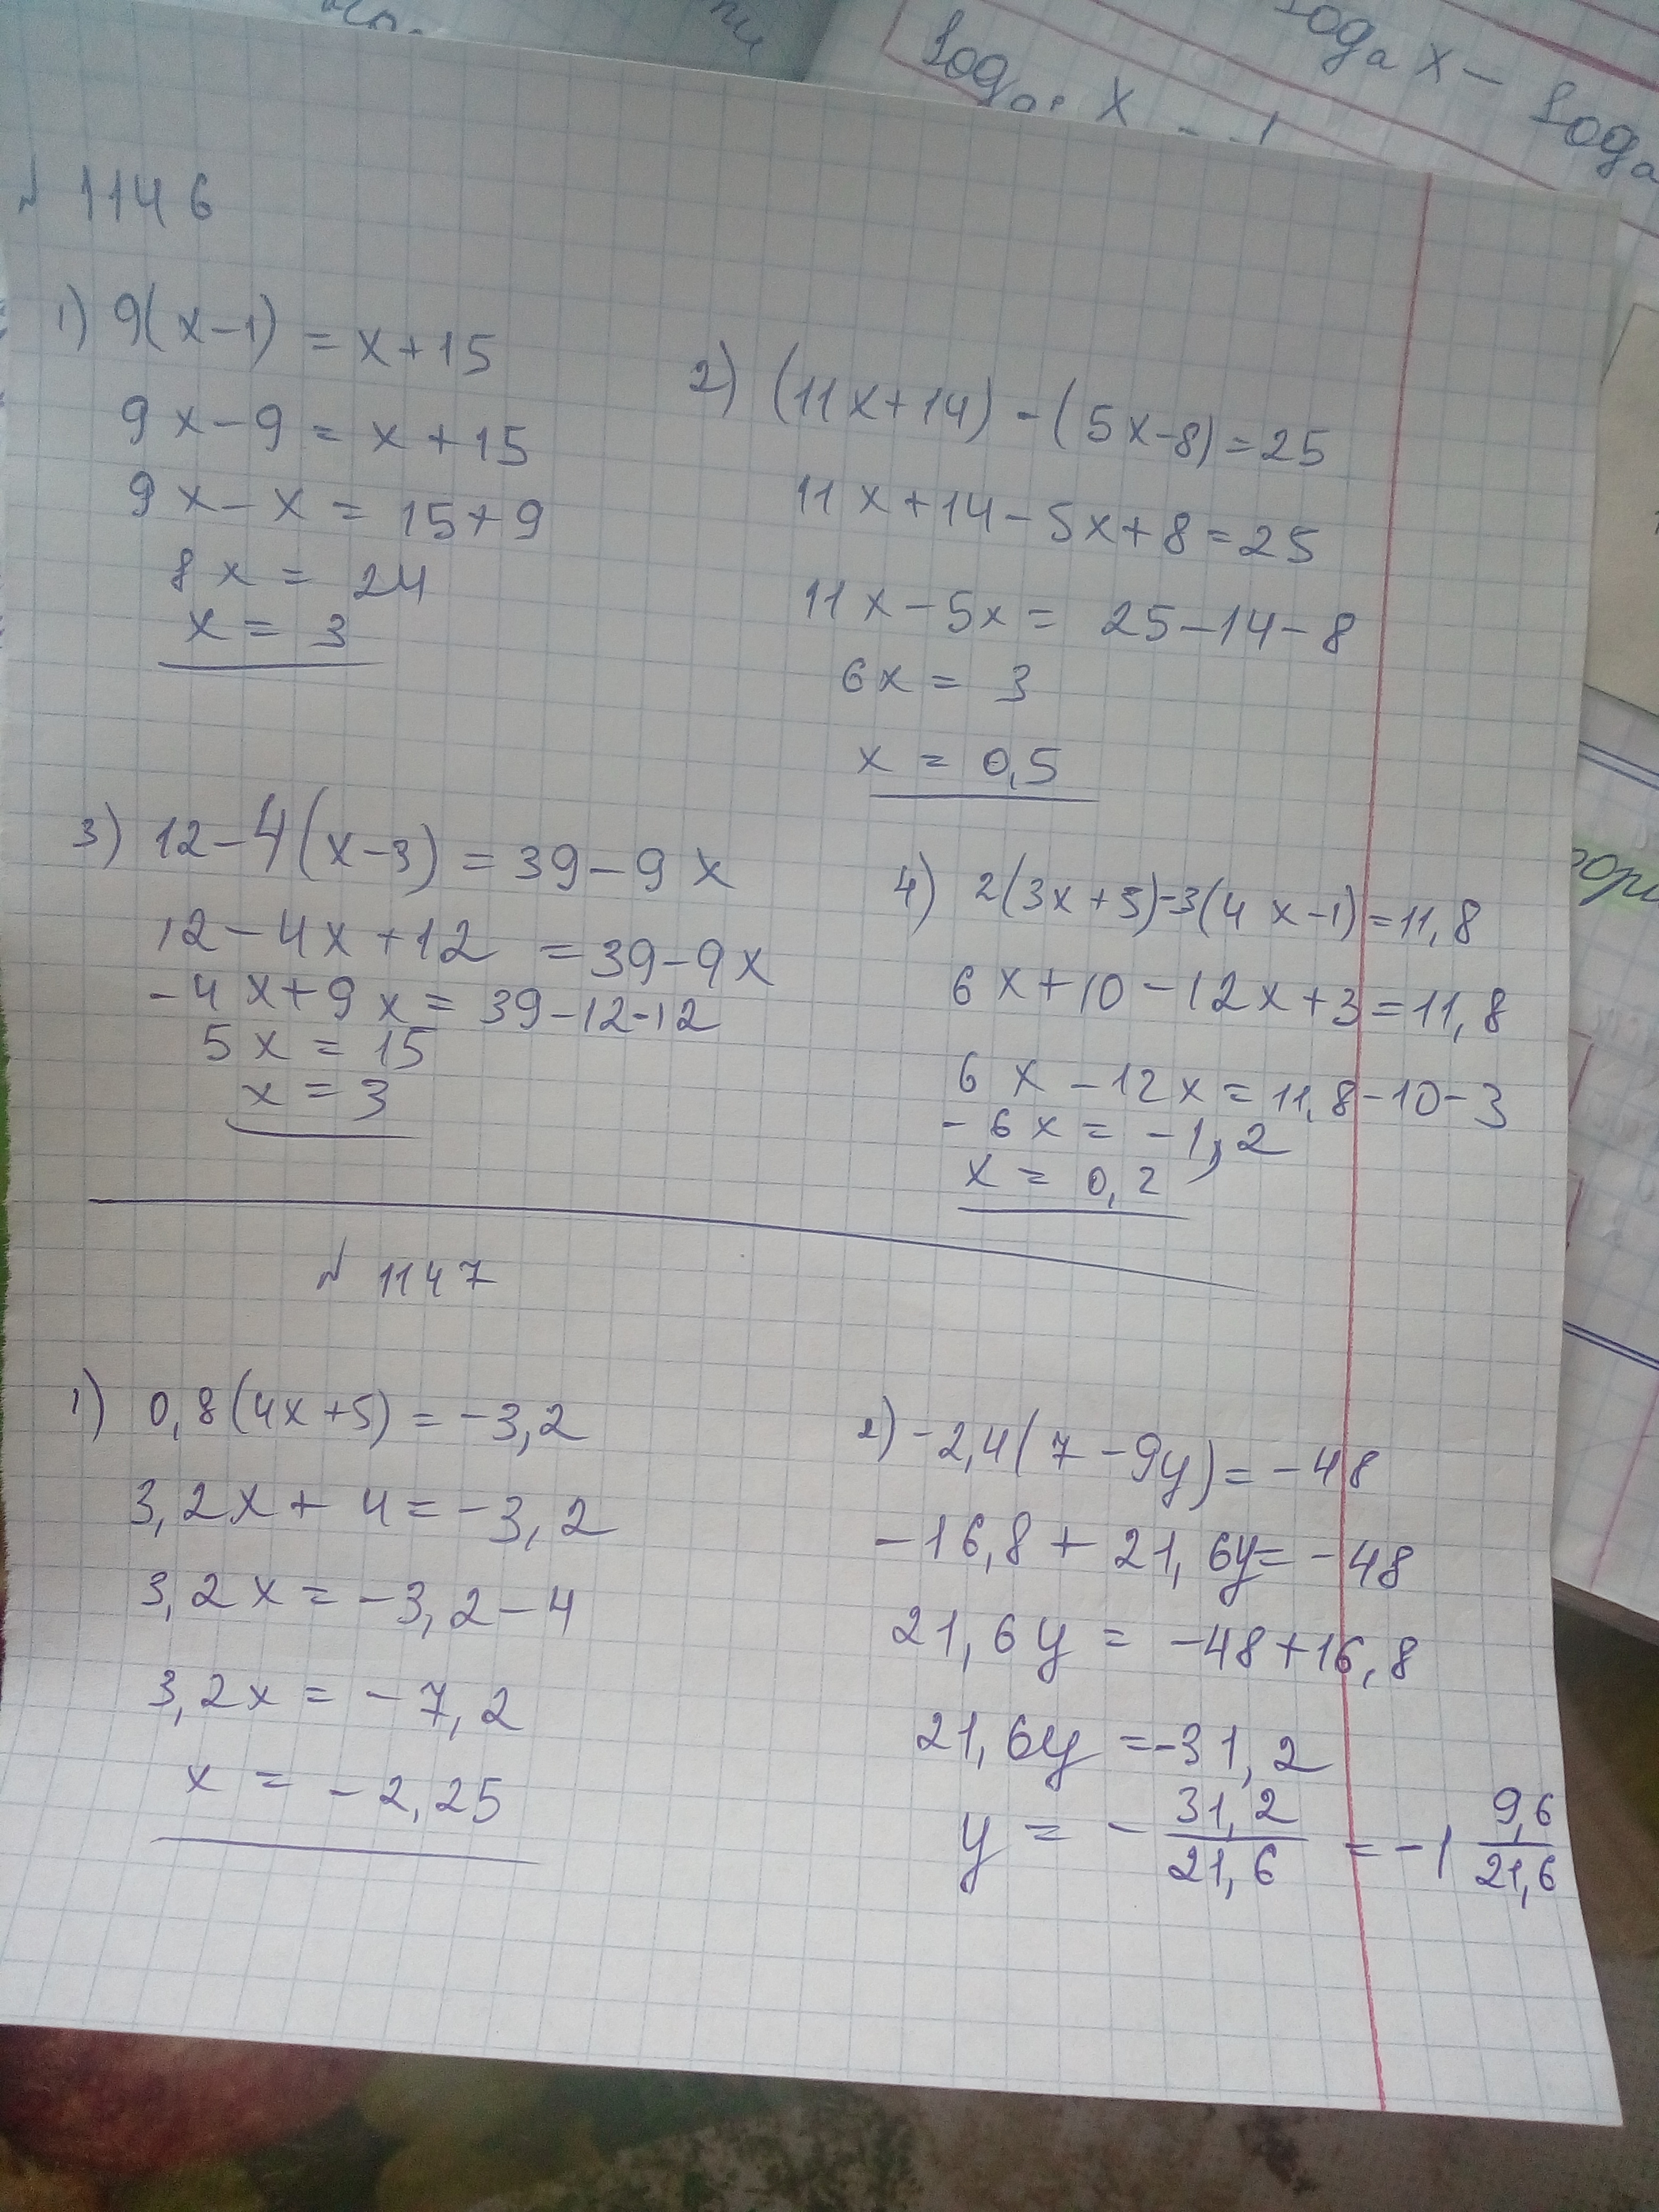 log_a x - log_a
log_a x
№ 1146
1) 9(x-1) = x+15
9x-9 = x+15
9x-x = 15+9
8x = 24
x = 3
2) (11x+14) - (5x-8) = 25
11x+14-5x+8 = 25
11x-5x = 25-14-8
6x = 3
x = 0,5
3) 12-4(x-3) = 39-9x
12-4x+12 = 39-9x
-4x+9x = 39-12-12
5x = 15
x = 3
4) 2(3x+5)-3(4x-1) = 11,8
6x+10-12x+3 = 11,8
6x-12x = 11,8-10-3
-6x = -1,2
x = 0,2
№ 1147
1) 0,8(4x+5) = -3,2
3,2x+4 = -3,2
3,2x = -3,2-4
3,2x = -7,2
x = -2,25
2) -2,4(7-9y) = -48
-16,8+21,6y = -48
21,6y = -48+16,8
21,6y = -31,2
y = -31,2/21,6 = -1 9,6/21,6